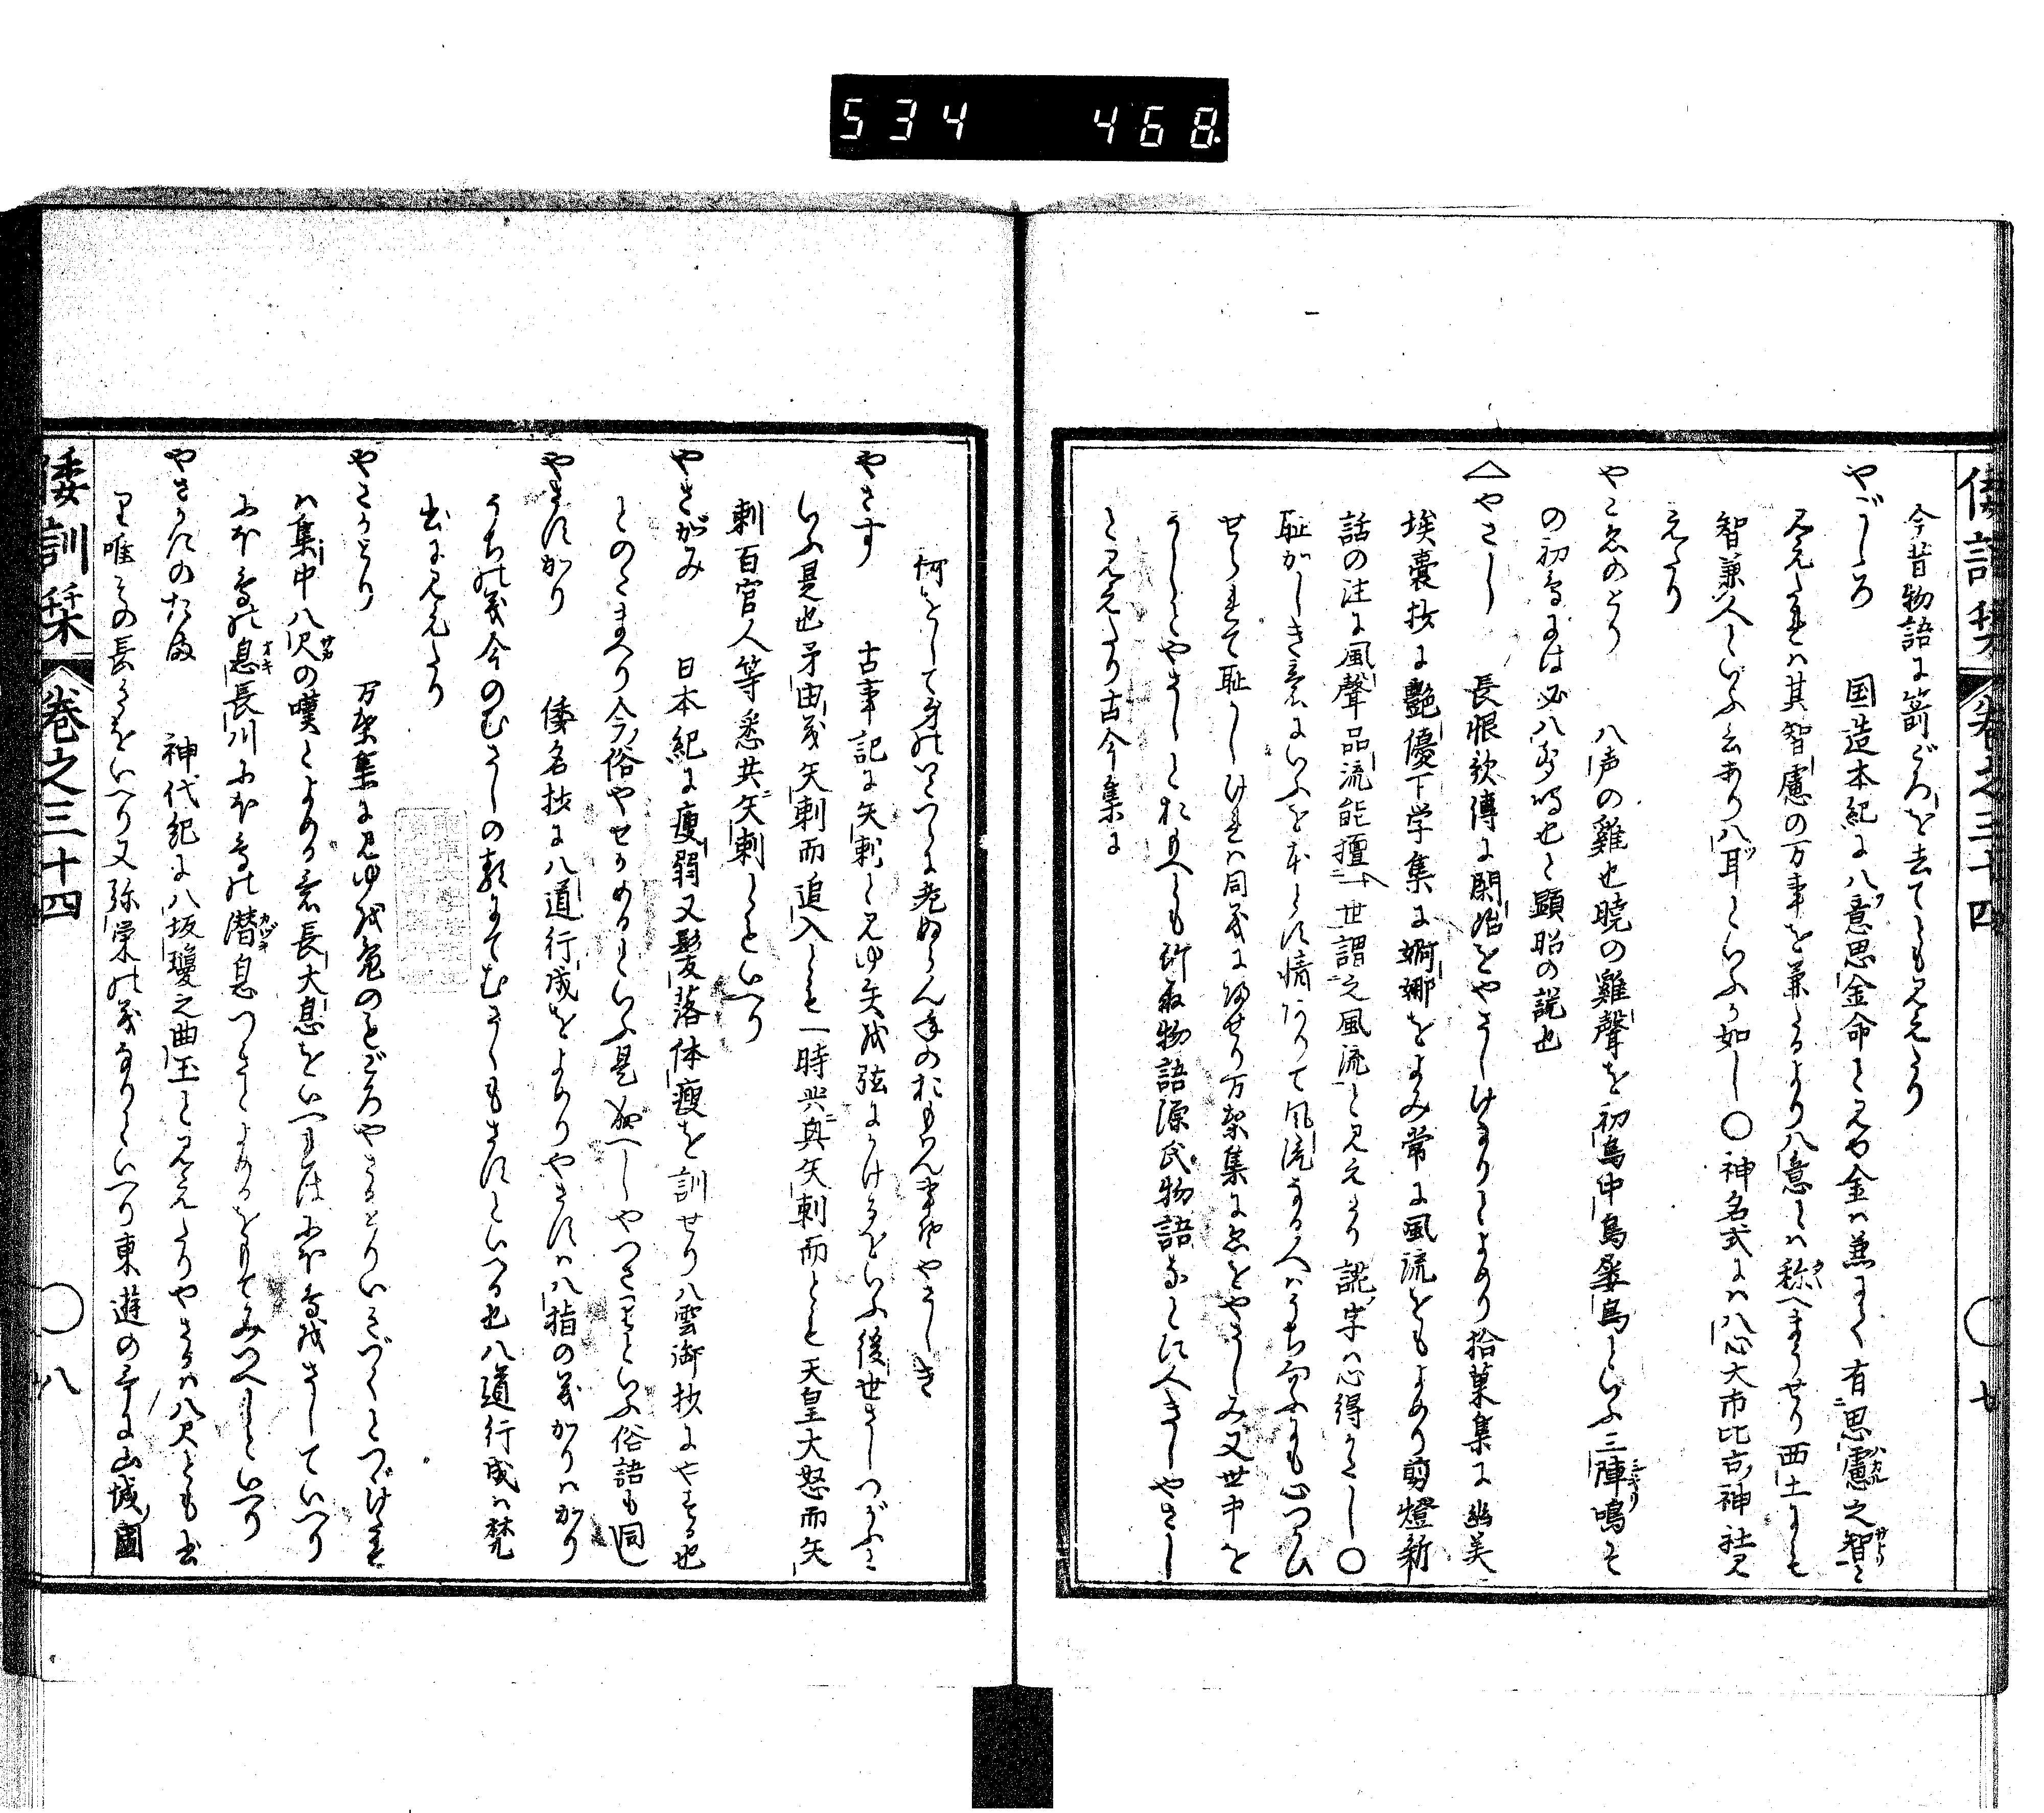 534 468.
倭訓栞 巻之三十四 ○ 七
今昔物語に箭ごろを去てとも見えたり
やごゝろ 国造本紀に八意思金命と見ゆ金は兼にて有思慮之智と
見えたれは其智慮の万事を兼たるより八意とは称へまうせり西土にも
智兼人といふ云あり八耳といふか如し○神名式には八心大市比古神社見
えたり
やこゑのとり 八声の雞也暁の雞聲を初鳥中鳥終鳥といふ三陣鳴そ
の初鳥には必八声鳴也と顕昭の説也
△やさし 長恨歌傳に閑冶をやさしけなりとよめり拾菓集に幽美
埃嚢抄に艶優下学集に婀娜をよみ常に風流をもよめり剪燈新
話の注に風聲品流能擅一世謂之風流と見えたり 字は心得かたし○
恥かしき意にいふを本とす情ありて風流なる人はうち
せられて恥かしけれは同義に せり万葉集に をやさしみ又世中を
うしとやさしとおもへとも竹取物語源氏物語なとに人きゝやさし
と見えたり古今集に
何をして身のいたつらに老ぬらん年のおもはん事そやさしき
やさす 古事記に矢刺と見ゆ矢を弦にかけるをいふ後世さしつがふと
いふ是也矛由義矢刺而追入とも一時共興矢刺而とも天皇大怒而矢
刺百官人等悉共矢刺ともいへり
やさがみ 日本紀に痩弱又髪落体痩を訓せり八雲御抄にやさる也
とのたまへり今俗やせかめるといふ是 へしやつさをといふ俗語も同し
やさすかり 倭名抄に八道行成をよめりやさすは八指の義かりはかり
うちの義今のむさしの類にてむさゝもさすといへる也八道行成は梵
書に見えたり
やさかとり 万葉集に見ゆ 鳥のもとゞろやさかとりいきつくとつゞけた
は集中八尺の嘆とよめる意長大息をいへれはにほ鳥をさしていへり
にほ鳥の息長川にほ鳥の潜息つきとよめるをもてみつへしといへり
やさかにのたま 神代紀に八坂瓊之曲玉と見えたりやさかは八尺とも書
り唯その長きをいへり又弥栄の義なりといへり東遊の哥に山城國
倭訓栞 巻之三十四 ○ 八